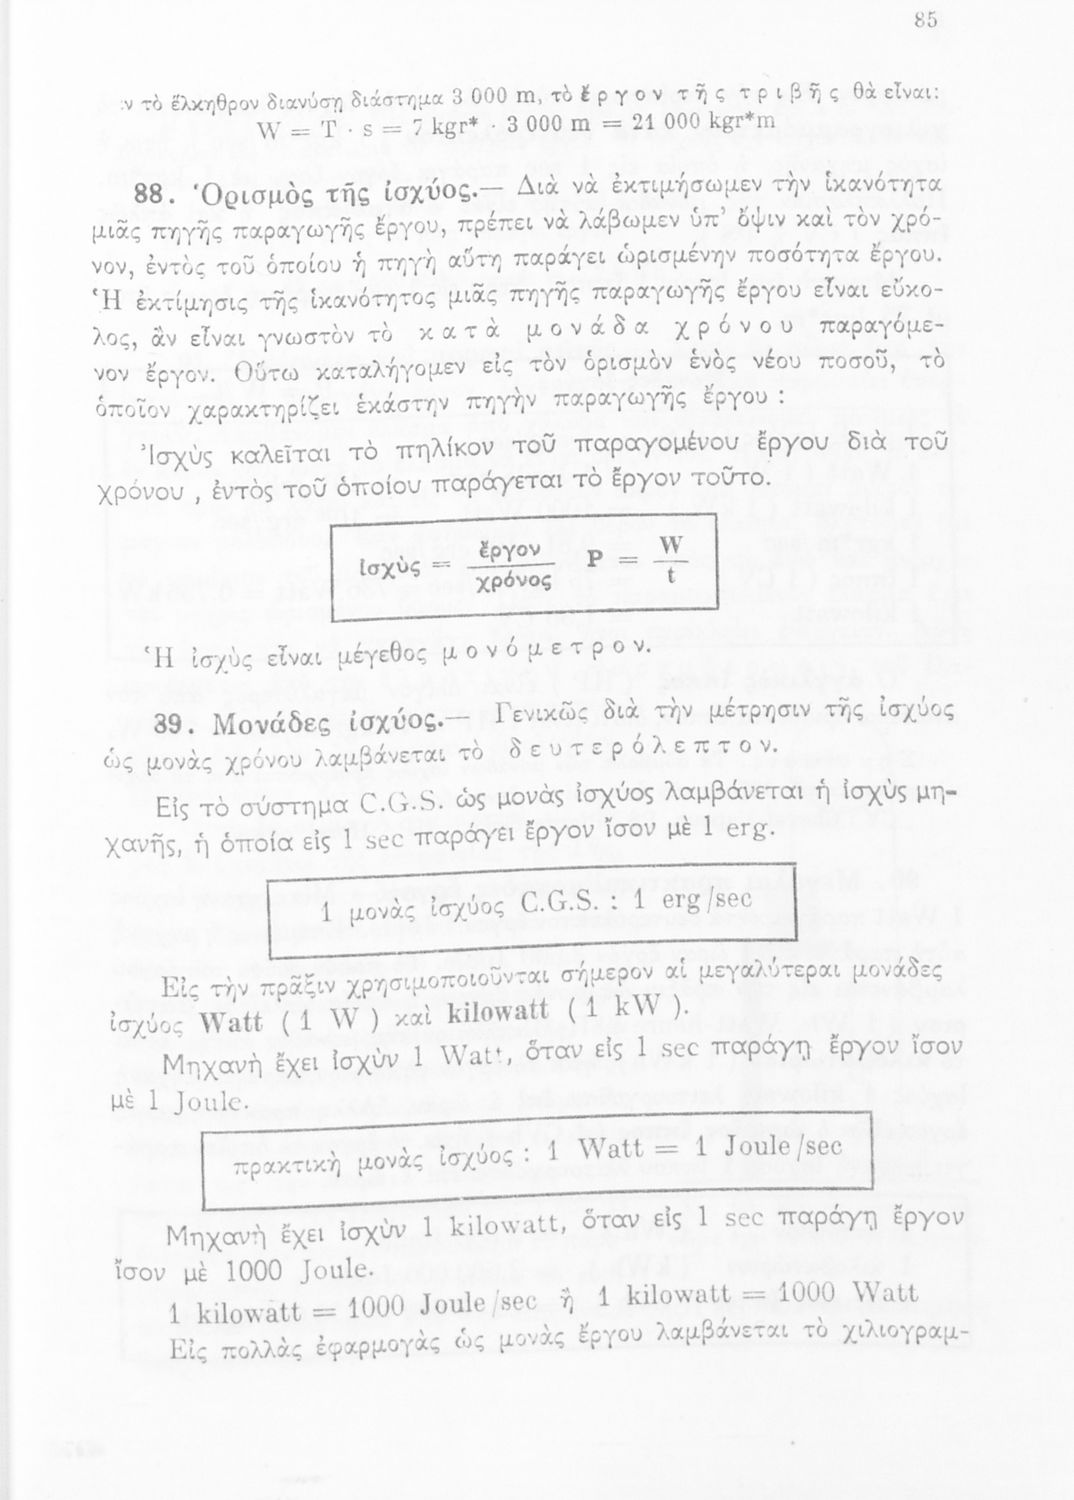 85
ν τὸ ἕλκηθρον διανύσῃ διάστημα 3 000 m, τὸ ἔργον τῆς τριβῆς θὰ εἶναι:
W = T · s = 7 kgr* · 3 000 m = 21 000 kgr*m
88. Ὁρισμὸς τῆς ἰσχύος.— Διὰ νὰ ἐκτιμήσωμεν τὴν ἱκανότητα
μιᾶς πηγῆς παραγωγῆς ἔργου, πρέπει νὰ λάβωμεν ὑπ' ὄψιν καὶ τὸν χρό-
νον, ἐντὸς τοῦ ὁποίου ἡ πηγὴ αὕτη παράγει ὡρισμένην ποσότητα ἔργου.
Ἡ ἐκτίμησις τῆς ἱκανότητος μιᾶς πηγῆς παραγωγῆς ἔργου εἶναι εὔκο-
λος, ἂν εἶναι γνωστὸν τὸ κατὰ μονάδα χρόνου παραγόμε-
νον ἔργον. Οὕτω καταλήγομεν εἰς τὸν ὁρισμὸν ἑνὸς νέου ποσοῦ, τὸ
ὁποῖον χαρακτηρίζει ἑκάστην πηγὴν παραγωγῆς ἔργου :
Ἰσχὺς καλεῖται τὸ πηλίκον τοῦ παραγομένου ἔργου διὰ τοῦ
χρόνου , ἐντὸς τοῦ ὁποίου παράγεται τὸ ἔργον τοῦτο.
ἰσχὺς = ἔργον / χρόνος P = W / t
Ἡ ἰσχὺς εἶναι μέγεθος μονόμετρον.
39. Μονάδες ἰσχύος.— Γενικῶς διὰ τὴν μέτρησιν τῆς ἰσχύος
ὡς μονὰς χρόνου λαμβάνεται τὸ δευτερόλεπτον.
Εἰς τὸ σύστημα C.G.S. ὡς μονὰς ἰσχύος λαμβάνεται ἡ ἰσχὺς μη-
χανῆς, ἡ ὁποία εἰς 1 sec παράγει ἔργον ἴσον μὲ 1 erg.
1 μονὰς ἰσχύος C.G.S. : 1 erg/sec
Εἰς τὴν πρᾶξιν χρησιμοποιοῦνται σήμερον αἱ μεγαλύτεραι μονάδες
ἰσχύος Watt ( 1 W ) καὶ kilowatt ( 1 kW ).
Μηχανὴ ἔχει ἰσχὺν 1 Watt, ὅταν εἰς 1 sec παράγῃ ἔργον ἴσον
μὲ 1 Joule.
πρακτικὴ μονὰς ἰσχύος : 1 Watt = 1 Joule/sec
Μηχανὴ ἔχει ἰσχὺν 1 kilowatt, ὅταν εἰς 1 sec παράγῃ ἔργον
ἴσον μὲ 1000 Joule.
1 kilowatt = 1000 Joule/sec ἢ 1 kilowatt = 1000 Watt
Εἰς πολλὰς ἐφαρμογὰς ὡς μονὰς ἔργου λαμβάνεται τὸ χιλιογραμ-